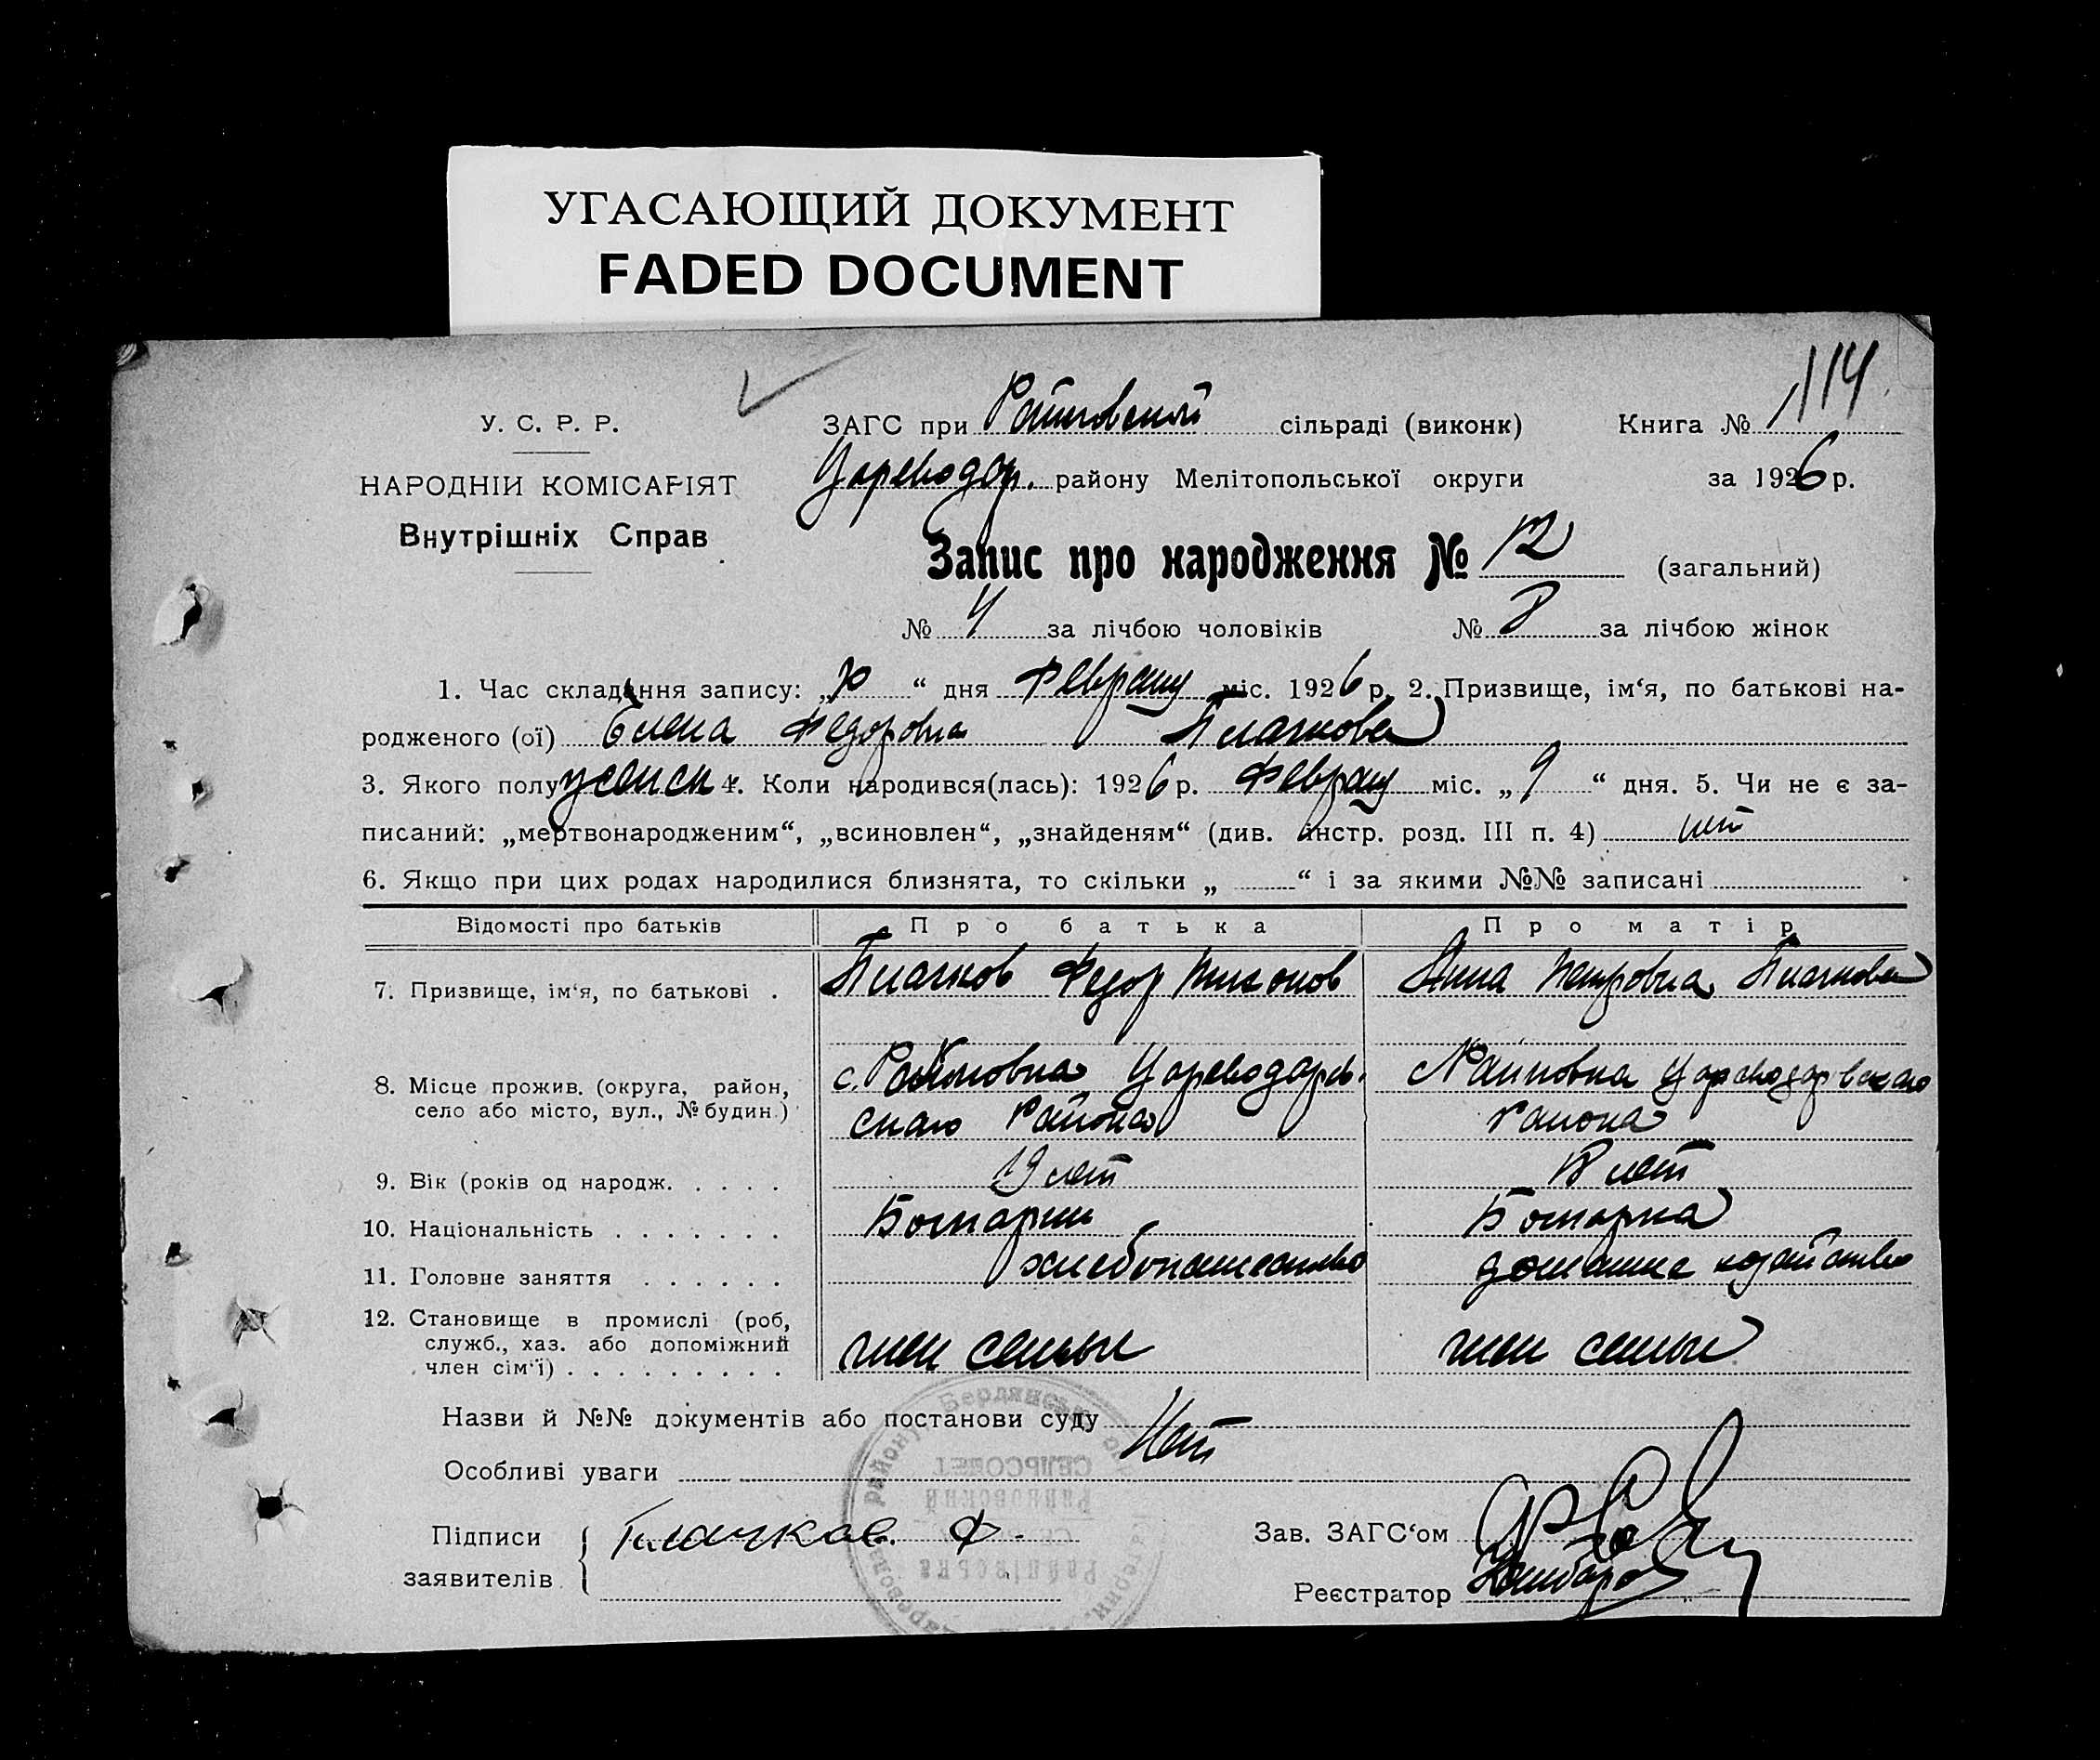 УГАСАЮЩИЙ ДОКУМЕНТ
FADED DOCUMENT
114
У. С. Р. Р.
НАРОДНІЙ КОМІСАРІЯТ
Внутрішніх Справ
ЗАГС при Райновской сільраді (виконк) Книга №
Цареводар. району Мелітопольської округи за 1926 р.
Запис про народження № 12 (загальний)
№ 4 за лічбою чоловіків № 8 за лічбою жінок
1. Час складання запису: „10“ дня февраля міс. 1926 р. 2. Призвище, ім‘я, по батькові на-
родженого (ої) Елена Федоровна Плачкова
3. Якого полу женск 4. Коли народився(лась): 1926 р. февраля міс. „9“ дня. 5. Чи не є за-
писаний: „мертвонародженим“, „всиновлен“, „знайденям“ (див. інстр. розд. III п. 4) нет
6. Якщо при цих родах народилися близнята, то скільки „ “ і за якими №№ записані
Відомості про батьків Про батька Про матір
7. Призвище, ім‘я, по батькові . Плачков Федор Тихонов Анна Петровна Плачкова
8. Місце прожив. (округа, район, село або місто, вул., № будин.) с. Райновка Цареводаров-
скаго Района Райновка Цареводаровскаго
Района
9. Вік (років од народж. . . . . 19 лет 18 лет
10. Національність . . . . . . . Болгарин Болгарка
11. Головне заняття . . . . . . хлебопашество домашне хозяйство
12. Становище в промислі (роб, служб., хаз. або допоміжний член сім‘ї) . . . . . . . . . член семьи член семьи
Назви й №№ документів або постанови суду Нет
Особливі уваги
Підписи заявителів Плачков. Ф.
Зав. ЗАГС‘ом
Реєстратор
району Бердянськ
СЕЛЬСОВЕТ
Райновский
Райнівська